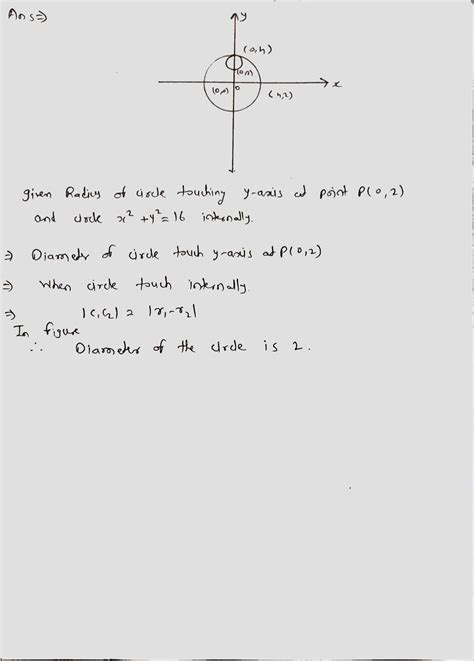 Ans⇒
y
(0,4)
(0,0)
x
(0,0)
0
given Radius of circle touching y-axis at point P(0,2)
and circle x² + y² = 16 internally.
⇒ Diameter of circle touch y-axis at P(0,2)
⇒ When circle touch internally.
⇒ |C₁C₂| = |r₁-r₂|
In figure
∴ Diameter of the circle is 2.